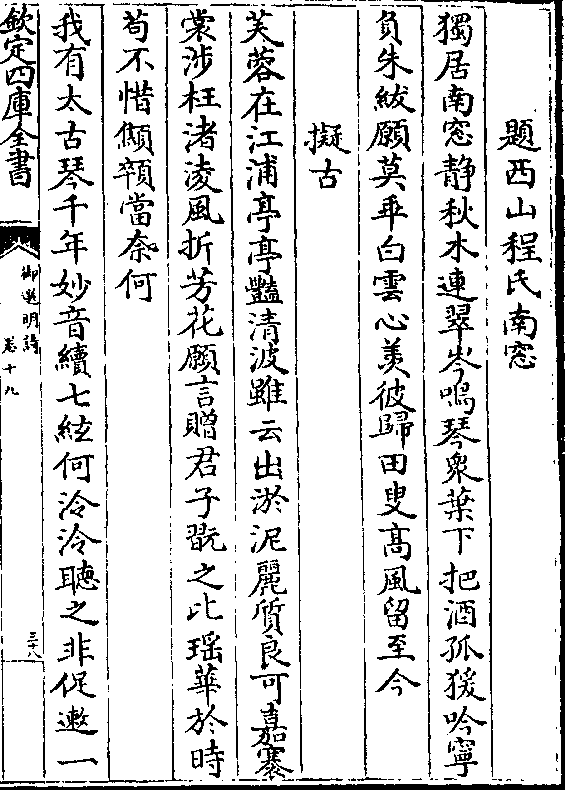 題西山程氏南窓
獨居南窓静秋水連翠岑鳴琴衆葉下把酒孤猨吟寧
負朱紱願莫乖白雲心羙彼歸田叟髙風留至今
擬古
芙蓉在江浦亭亭豔清波雖云出淤泥麗質良可嘉褰
裳涉枉渚凌風折芳花願言贈君子翫之比瑶華於時
苟不惜顦顇當奈何
我有太古琴千年妙音續七絃何泠泠聽之非促遬一
欽定四庫全書
御選明詩
卷十九
三十八